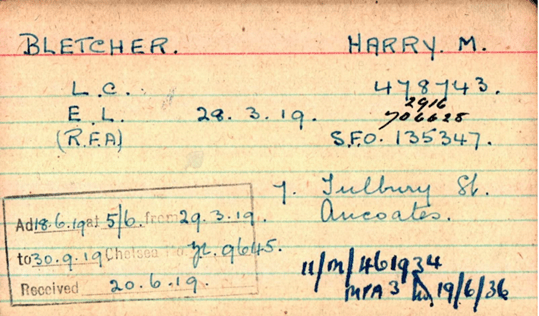 BLETCHER. HARRY. M.
L.C. 478743.
2916
E.L. 28.3.19. 706628
(R.F.A) S.F.O. 135347.
7. Tulbury St.
Ancoates.
Ad 18.6.19 at 5/6. from 29.3.19.
to 30.9.19 Chelsea No. 9645.
Received 20.6.19.
11/M/461934
MPA3 19/6/36